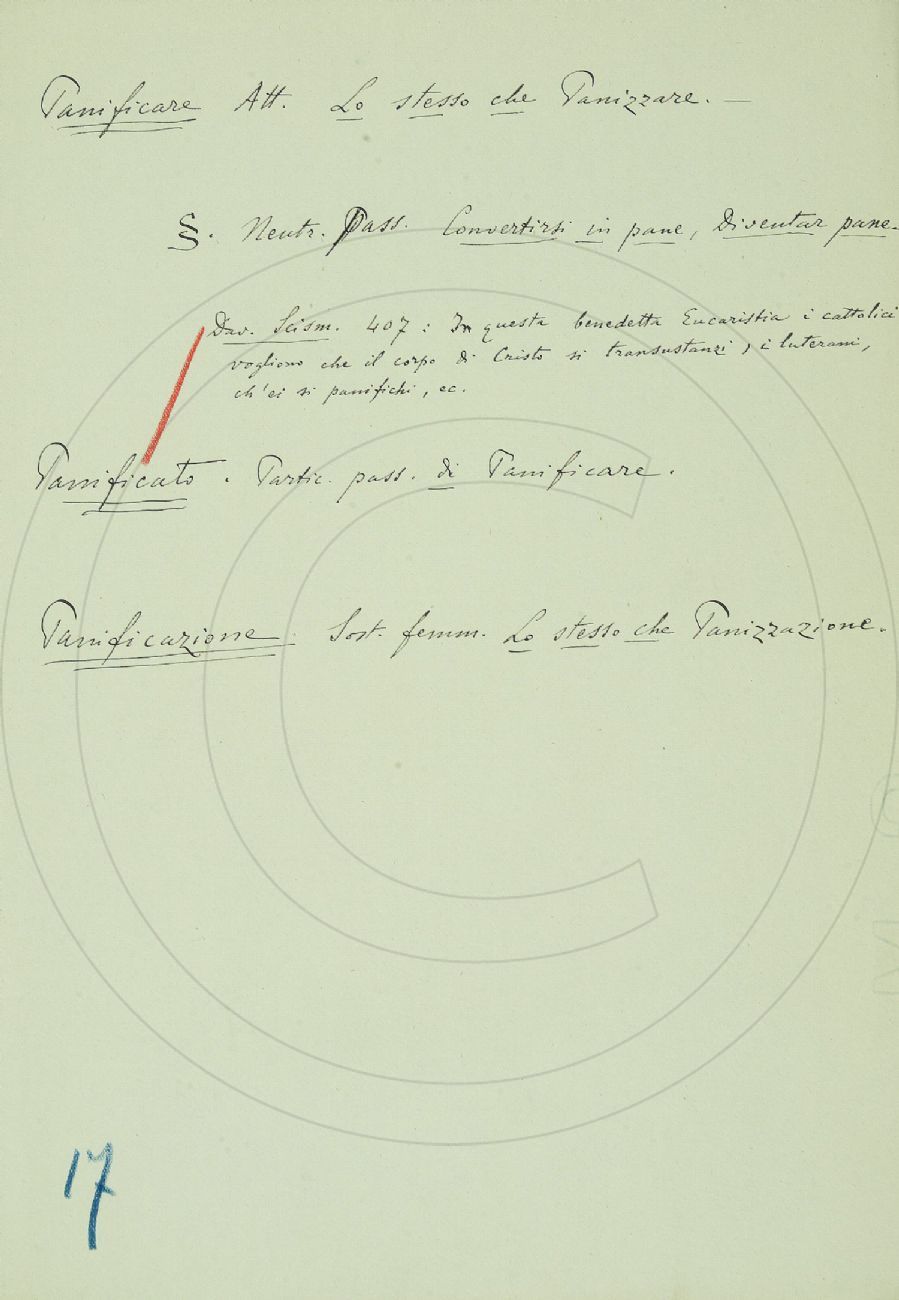 Panificare Att. Lo stesso che Panizzare. —
§. Neutr. Pass. Convertirsi in pane, Diventar pane.
Dav. Scism. 407: In questa benedetta Eucaristia i cattolici
vogliono che il corpo di Cristo si transustanzi, i luterani,
ch'ei si panifichi, ec.
Panificato. Partic. pass. di Panificare.
Panificazione. Sost. femm. Lo stesso che Panizzazione.
17